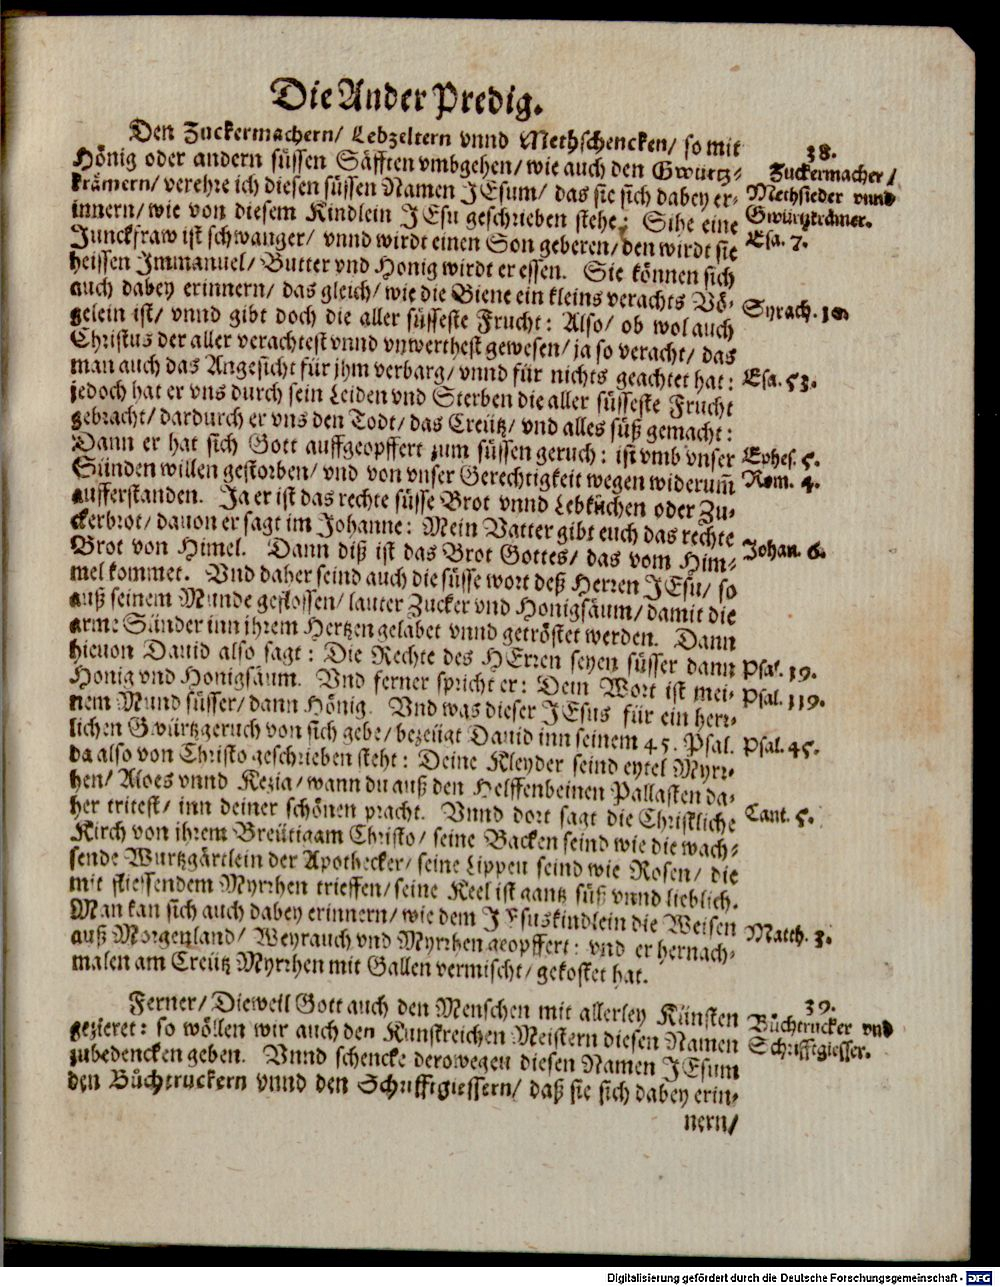 Die Ander Predig.
Den Zuckermachern/ Lebzeltern vnnd Methschencken/ so mit
Hönig oder andern süssen Säfften vmbgehen/ wie auch den Gwürtz-
krämern/ verehre ich diesen süssen Namen JEsum/ das sie sich dabey er-
innern/ wie von diesem Kindlein JEsu geschrieben stehe: Sihe eine
Junckfraw ist schwanger/ vnnd wirdt einen Son geberen/ den wirdt sie
heissen Immanuel/ Butter vnd Honig wirdt er essen. Sie können sich
auch dabey erinnern/ das gleich/ wie die Biene ein kleins verachts Vö-
gelein ist/ vnnd gibt doch die aller süsseste Frucht: Also/ ob wol auch
Christus der aller verachtest vnnd vnwerthest gewesen/ ja so veracht/ das
man auch das Angesicht für jhm verbarg/ vnnd für nichts geachtet hat:
jedoch hat er vns durch sein Leiden vnd Sterben die aller süsseste Frucht
gebracht/ dardurch er vns den Todt/ das Creütz/ vnd alles süß gemacht:
Dann er hat sich Gott auffgeopffert zum süssen geruch: ist vmb vnser
Sünden willen gestorben/ vnd von vnser Gerechtigkeit wegen widerum̃
aufferstanden. Ja er ist das rechte süsse Brot vnnd Lebküchen oder Zu-
ckerbrot/ dauon er sagt im Johanne: Mein Vatter gibt euch das rechte
Brot von Himel. Dann diß ist das Brot Gottes/ das vom Him-
mel kommet. Vnd daher seind auch die süsse wort deß Herren JEsu/ so
auß seinem Munde geflossen/ lauter Zucker vnd Honigsäum/ damit die
arme Sünder inn ihrem Hertzen gelabet vnnd getröstet werden. Dann
hieuon Dauid also sagt: Die Rechte des HErren seyen süsser dann
Honig vnd Honigsäum. Vnd ferner spricht er: Dein Wort ist mei-
nem Mund süsser/ dann Hönig. Vnd was dieser JEsus für ein herr-
lichen Gwürtzgeruch von sich gebe/ bezeügt Dauid inn seinem 45. Psal.
da also von Christo geschrieben steht: Deine Kleyder seind eytel Myrr-
hen/ Aloes vnnd Kezia/ wann du auß den Helffenbeinen Pallasten da-
her tritest/ inn deiner schönen pracht. Vnnd dort sagt die Christliche
Kirch von ihrem Breütigam Christo/ seine Backen seind wie die wach-
sende Wurtzgärtlein der Apothecker/ seine Lippen seind wie Rosen/ die
mit fliessendem Myrrhen trieffen/ seine Keel ist gantz süß vnnd lieblich.
Man kan sich auch dabey erinnern/ wie dem JEsuskindlein die Weisen
auß Morgenland/ Weyrauch vnd Myrrhen geopffert: vnd er hernach-
malen am Creütz Myrrhen mit Gallen vermischt/ gekostet hat.
Ferner/ Dieweil Gott auch den Menschen mit allerley Künsten
gezieret: so wöllen wir auch den Kunstreichen Meistern diesen Namen
zubedencken geben. Vnnd schencke derowegen diesen Namen JEsum
den Büchtruckern vnnd den Schrifftgiessern/ daß sie sich dabey erin-
nern/
38.
Zuckermacher/
Methsieder vnnd
Gwürtzkrämer.
Esa. 7.
Syrach.
Esa. 53.
Ephes. 5.
Rom. 4.
Johan. 6.
Psal. 19.
Psal. 119.
Psal. 45.
Cant. 5.
Matth. 2.
39.
Büchtrucker vnd
Schrifftgiesser.
Digitalisierung gefördert durch die Deutsche Forschungsgemeinschaft - DFG